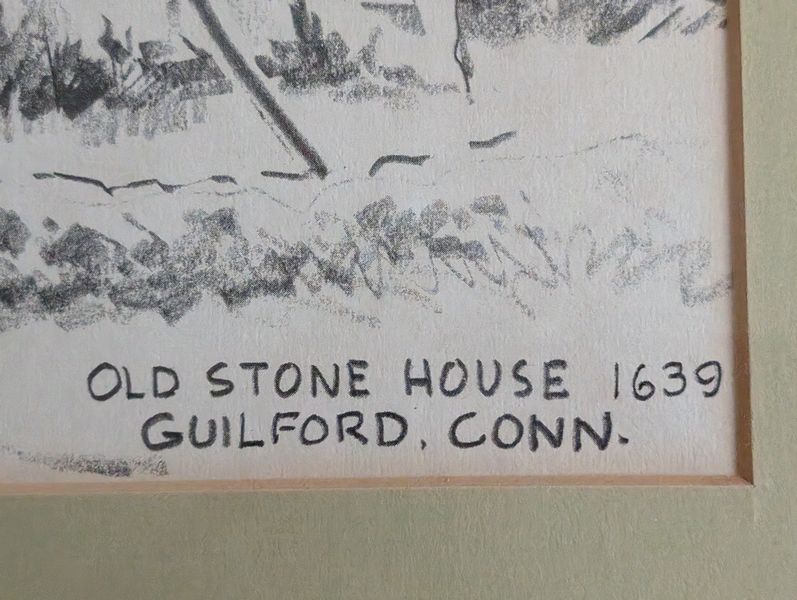 OLD STONE HOUSE 1639
GUILFORD, CONN.